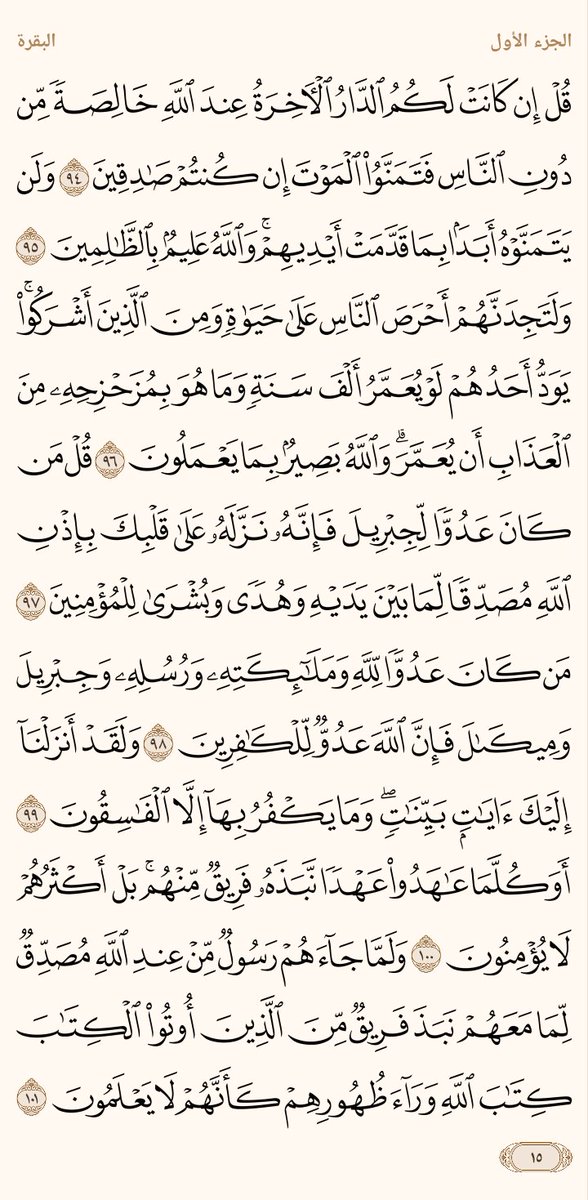 الجزء الأول
البقرة
قُلْ إِن كَانَتْ لَكُمُ ٱلدَّارُ ٱلْءَاخِرَةُ عِندَ ٱللَّهِ خَالِصَةً مِّن
دُونِ ٱلنَّاسِ فَتَمَنَّوُا۟ ٱلْمَوْتَ إِن كُنتُمْ صَٰدِقِينَ ٩٤ وَلَن
يَتَمَنَّوْهُ أَبَدًۢا بِمَا قَدَّمَتْ أَيْدِيهِمْ ۚ وَٱللَّهُ عَلِيمٌۢ بِٱلظَّٰلِمِينَ ٩٥
وَلَتَجِدَنَّهُمْ أَحْرَصَ ٱلنَّاسِ عَلَىٰ حَيَوٰةٍ وَمِنَ ٱلَّذِينَ أَشْرَكُوا۟ ۚ
يَوَدُّ أَحَدُهُمْ لَوْ يُعَمَّرُ أَلْفَ سَنَةٍ وَمَا هُوَ بِمُزَحْزِحِهِۦ مِنَ
ٱلْعَذَابِ أَن يُعَمَّرَ ۗ وَٱللَّهُ بَصِيرٌۢ بِمَا يَعْمَلُونَ ٩٦ قُلْ مَن
كَانَ عَدُوًّا لِّجِبْرِيلَ فَإِنَّهُۥ نَزَّلَهُۥ عَلَىٰ قَلْبِكَ بِإِذْنِ
ٱللَّهِ مُصَدِّقًا لِّمَا بَيْنَ يَدَيْهِ وَهُدًى وَبُشْرَىٰ لِلْمُؤْمِنِينَ ٩٧
مَن كَانَ عَدُوًّا لِّلَّهِ وَمَلَٰٓئِكَتِهِۦ وَرُسُلِهِۦ وَجِبْرِيلَ
وَمِيكَىٰلَ فَإِنَّ ٱللَّهَ عَدُوٌّ لِّلْكَٰفِرِينَ ٩٨ وَلَقَدْ أَنزَلْنَآ
إِلَيْكَ ءَايَٰتٍۭ بَيِّنَٰتٍ ۖ وَمَا يَكْفُرُ بِهَآ إِلَّا ٱلْفَٰسِقُونَ ٩٩
أَوَكُلَّمَا عَٰهَدُوا۟ عَهْدًا نَّبَذَهُۥ فَرِيقٌ مِّنْهُم ۚ بَلْ أَكْثَرُهُمْ
لَا يُؤْمِنُونَ ١٠٠ وَلَمَّا جَآءَهُمْ رَسُولٌ مِّنْ عِندِ ٱللَّهِ مُصَدِّقٌ
لِّمَا مَعَهُمْ نَبَذَ فَرِيقٌ مِّنَ ٱلَّذِينَ أُوتُوا۟ ٱلْكِتَٰبَ
كِتَٰبَ ٱللَّهِ وَرَآءَ ظُهُورِهِمْ كَأَنَّهُمْ لَا يَعْلَمُونَ ١٠١
١٥